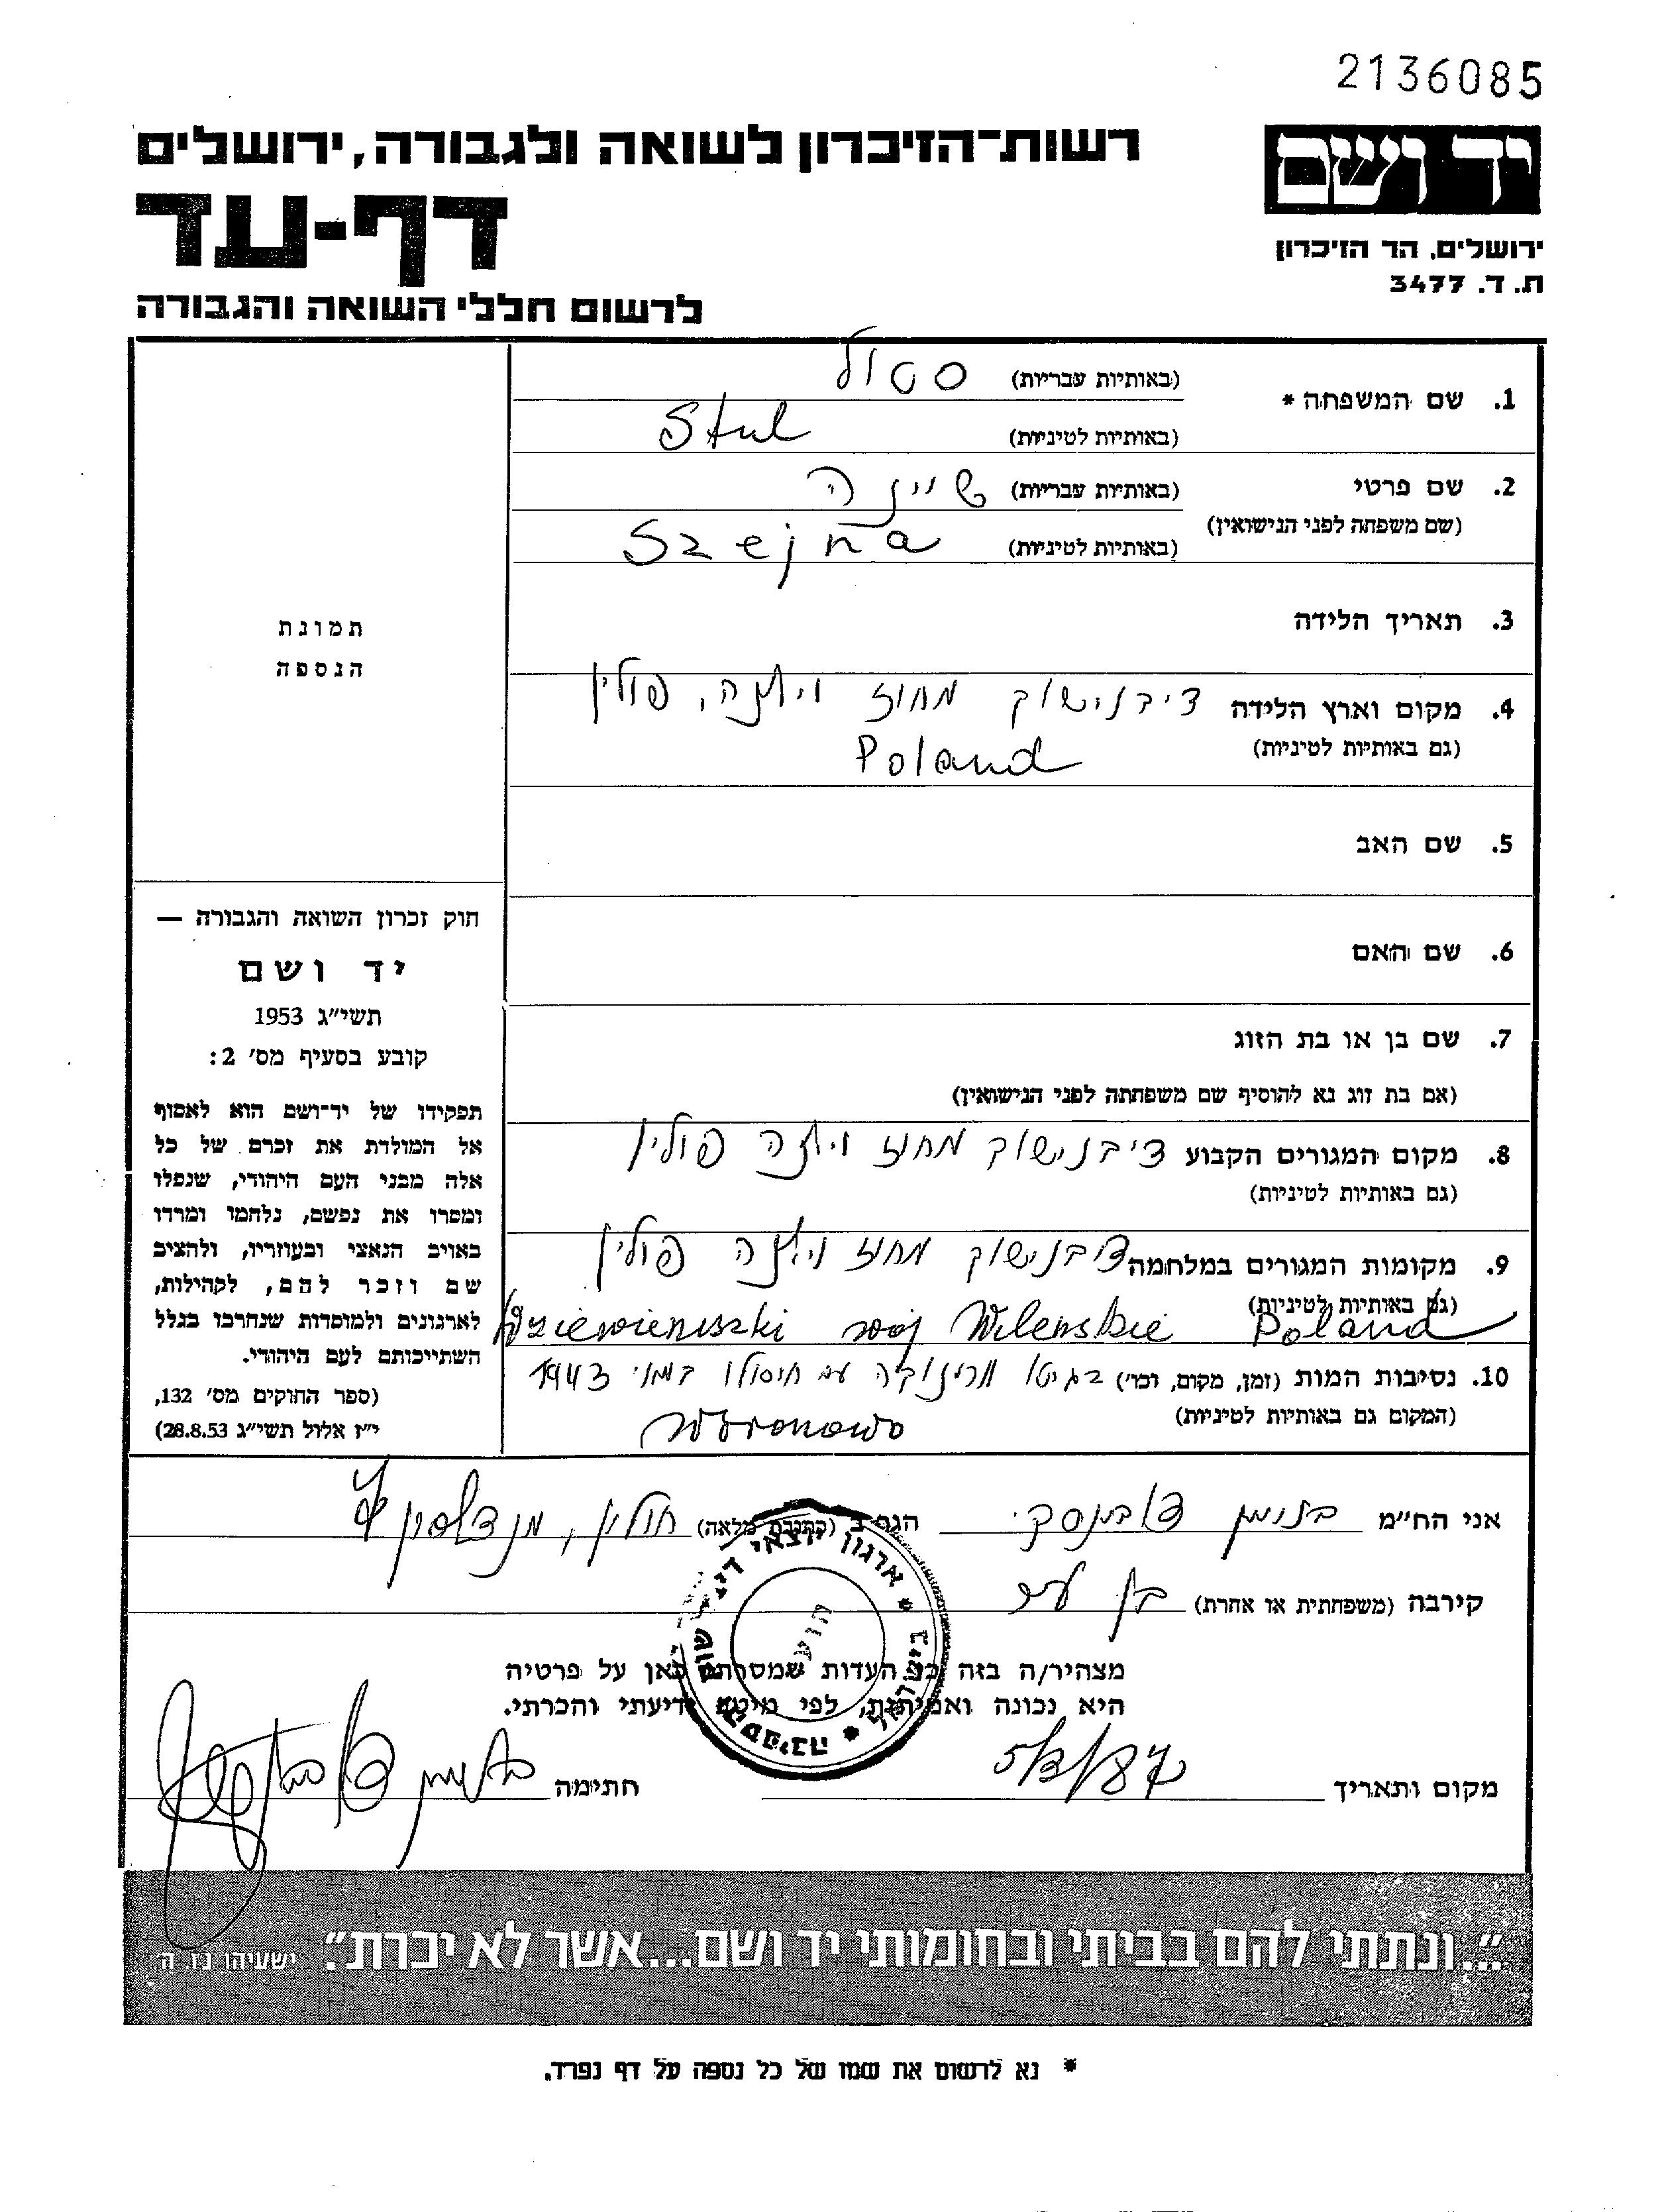 2136085
רשות־הזיכרון לשואה ולגבורה, ירושלים
יד ושם
דף-עד
ירושלים, הר הזיכרון
ת. ד. 3477
לרשום חללי השואה והגבורה
1. שם המשפחה * (באותיות עבריות) סטול
(באותיות לטיניות) Stul
2. שם פרטי (באותיות עבריות) שיינה
(שם משפחה לפני הנישואין) (באותיות לטיניות) Szejna
3. תאריך הלידה
תמונת
הנספה
4. מקום וארץ הלידה דיבנישוק מחוז וילנה, פולין
(גם באותיות לטיניות) Poland
5. שם האב
6. שם האם
7. שם בן או בת הזוג
(אם בת זוג נא להוסיף שם משפחתה לפני הנישואין)
8. מקום המגורים הקבוע דיבנישוק מחוז וילנה פולין
(גם באותיות לטיניות)
9. מקומות המגורים במלחמה דיבנישוק מחוז וילנה פולין
(גם באותיות לטיניות) Dziewieniszki woj Wilenskie Poland
10. נסיבות המות (זמן, מקום, וכו') בגיטו וורונובה עם חיסולו במאי 1943
(המקום גם באותיות לטיניות) Woronowo
חוק זכרון השואה והגבורה —
יד ושם
תשי״ג 1953
קובע בסעיף מס׳ 2:
תפקידו של יד־ושם הוא לאסוף
אל המולדת את זכרם של כל
אלה מבני העם היהודי, שנפלו
ומסרו את נפשם, נלחמו ומרדו
באויב הנאצי ובעוזריו, ולהציב
שם וזכר להם, לקהילות,
לארגונים ולמוסדות שנחרבו בגלל
השתייכותם לעם היהודי.
(ספר החוקים מס׳ 132,
י״ז אלול תשי״ג 28.8.53)
אני הח״מ בנימין דובינסקי הגר ב (כתובת מלאה) חולון,
קירבה (משפחתית או אחרת) בן עיר
מצהיר/ה בזה כי העדות שמסרתי כאן על פרטיה
היא נכונה ואמיתית, לפי מיטב ידיעתי והכרתי.
ארגון יוצאי והסביבה * בישראל *
מקום ותאריך חתימה
״...ונתתי להם בביתי ובחומותי יד ושם...אשר לא יכרת״. ישעיהו נו, ה׳
* נא לרשום את שמו של כל נספה על דף נפרד.